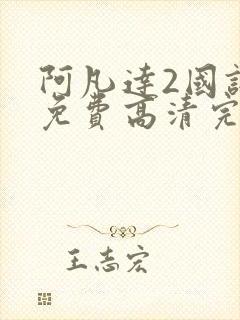 阿凡達2國
免費高清完
王志宏